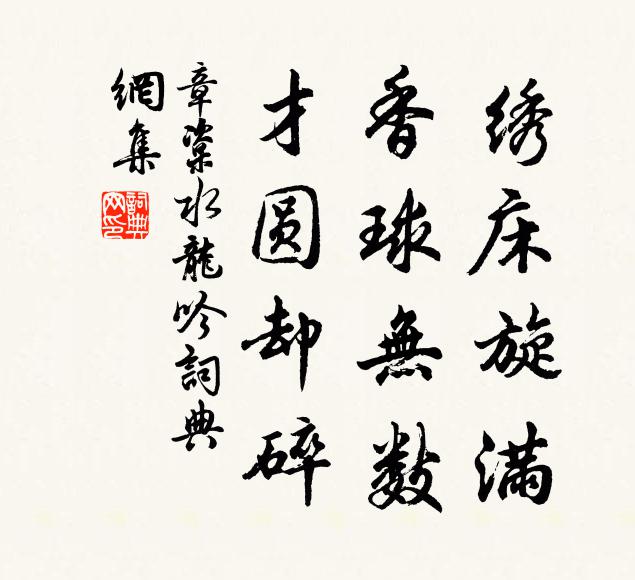 绣床旋满
香球無数
才圆却碎
章楶水龍吟詞典
網集
詞典网印